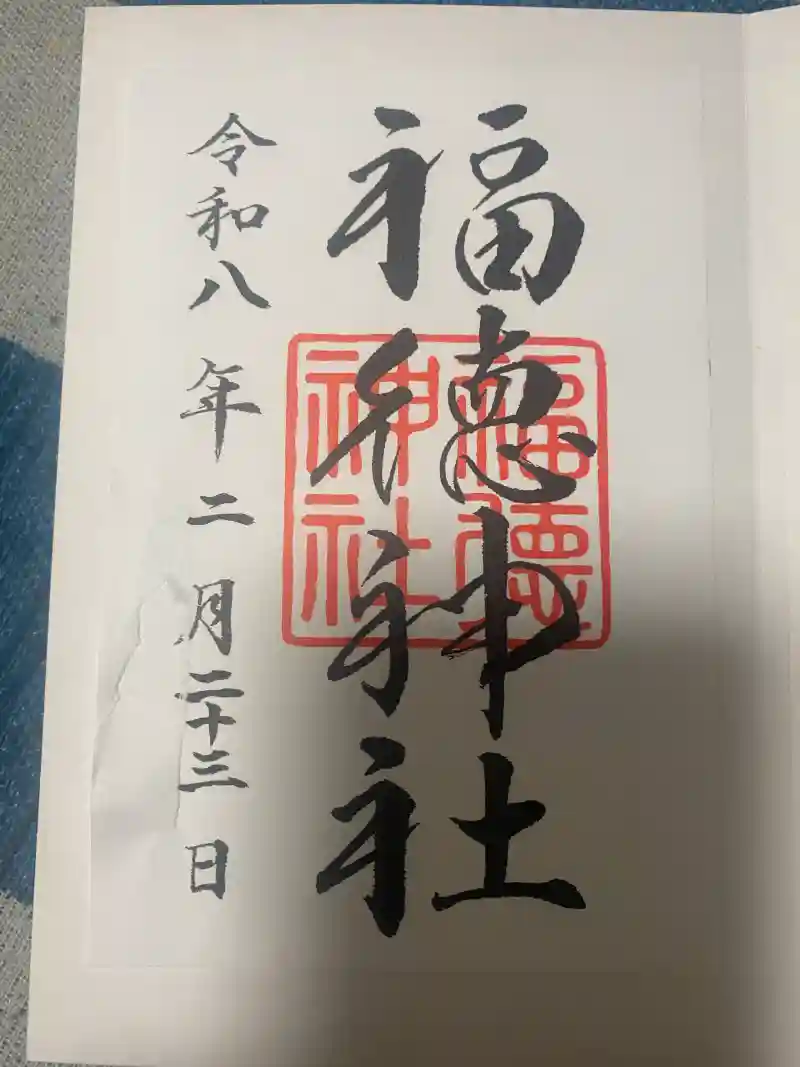 福徳神社
福德
神社
令和八年二月二十三日